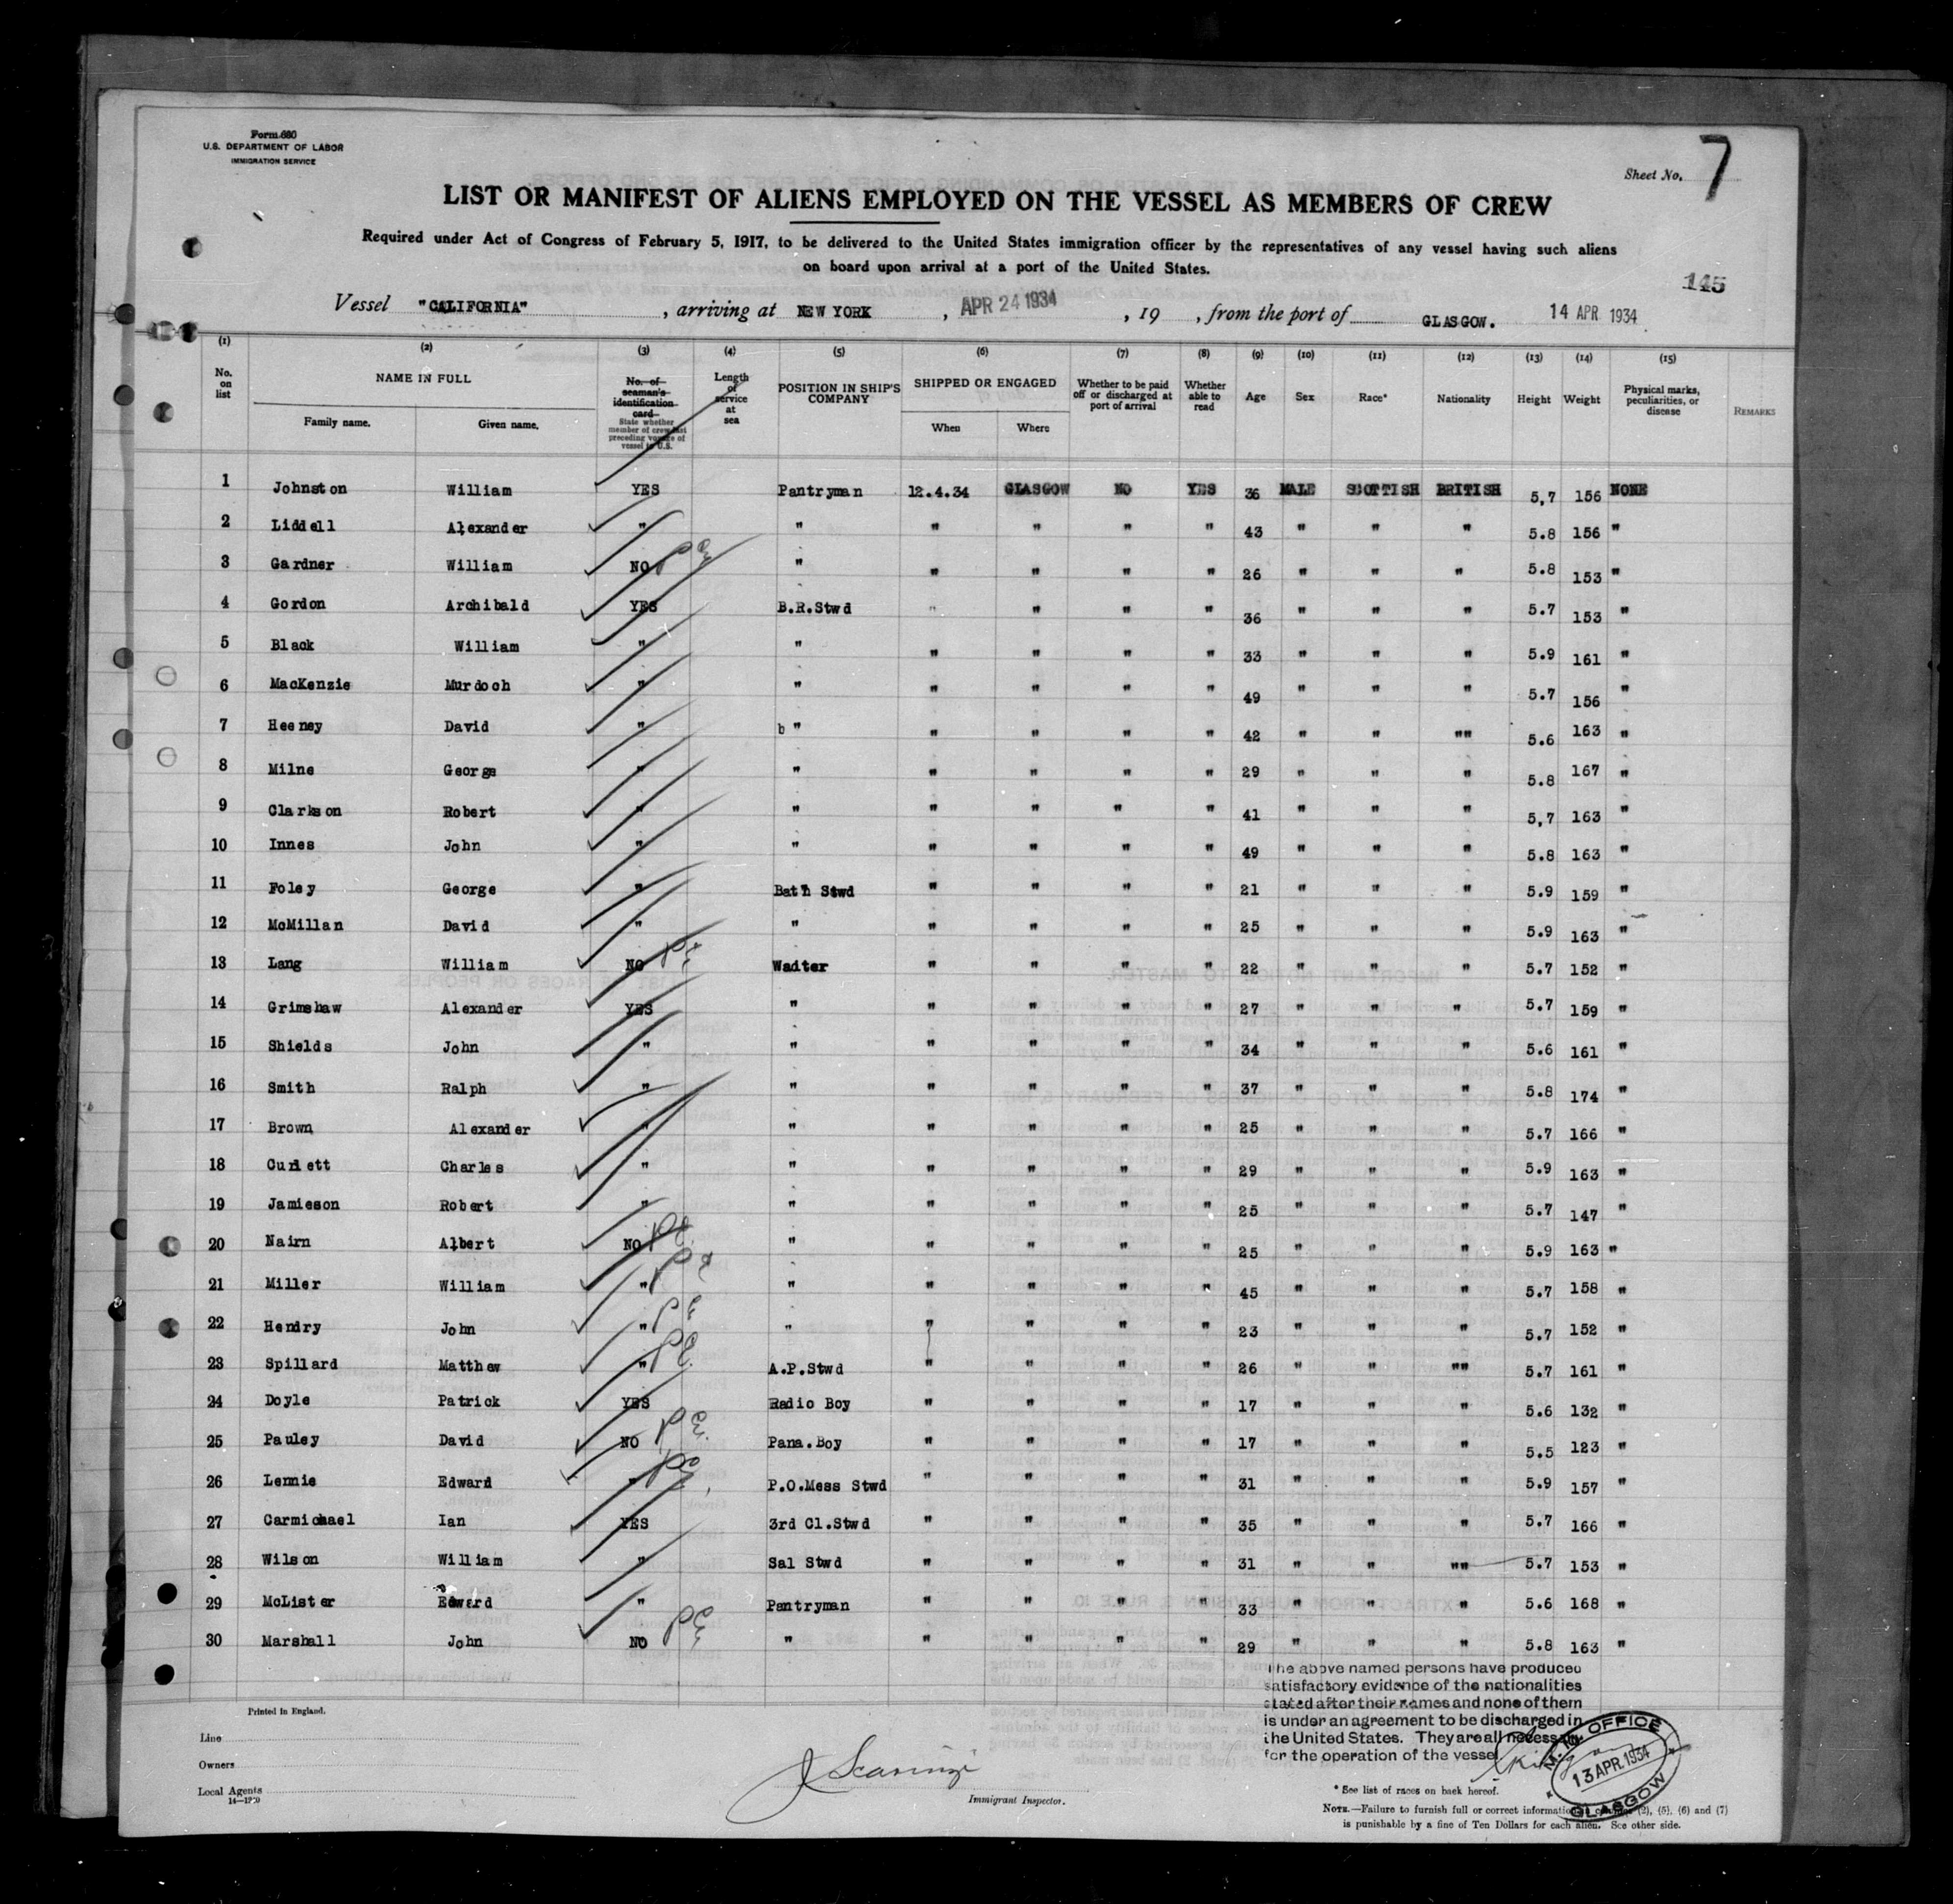 Form 680
U.S. DEPARTMENT OF LABOR
IMMIGRATION SERVICE
Sheet No. 7
LIST OR MANIFEST OF ALIENS EMPLOYED ON THE VESSEL AS MEMBERS OF CREW
Required under Act of Congress of February 5, 1917, to be delivered to the United States immigration officer by the representatives of any vessel having such aliens
on board upon arrival at a port of the United States.
145
Vessel "CALIFORNIA" , arriving at NEW YORK , APR 24 1934 , 19 , from the port of GLASGOW. 14 APR 1934
(1) (2) (3) (4) (5) (6) (7) (8) (9) (10) (11) (12) (13) (14) (15)
No. on list NAME IN FULL Family name. Given name. No. of seaman's identification card State whether member of crew last preceding voyage of vessel to U.S. Length of service at sea POSITION IN SHIP'S COMPANY SHIPPED OR ENGAGED When Where Whether to be paid off or discharged at port of arrival Whether able to read Age Sex Race* Nationality Height Weight Physical marks, peculiarities, or disease REMARKS
1 Johnston William YES Pantryman 12.4.34 GLASGOW NO YES 36 MALE SCOTTISH BRITISH 5,7 156 NONE
2 Liddell Alexander " " " " " " 43 " " " 5.8 156 "
3 Gardner William NO " " " " " 26 " " " 5.8 153 "
4 Gordon Archibald YES B.R.Stwd " " " " 36 " " " 5.7 153 "
5 Black William " " " " " " 33 " " " 5.9 161 "
6 MacKenzie Murdoch " " " " " " 49 " " " 5.7 156 "
7 Heeney David " b " " " " " 42 " " "" 5.6 163 "
8 Milne George " " " " " " 29 " " " 5.8 167 "
9 Clarkson Robert " " " " " " 41 " " " 5,7 163 "
10 Innes John " " " " " " 49 " " " 5.8 163 "
11 Foley George " Bath Stwd " " " " 21 " " " 5.9 159 "
12 McMillan David " " " " " " 25 " " " 5.9 163 "
13 Lang William NO Waiter " " " " 22 " " " 5.7 152 "
14 Grimshaw Alexander YES " " " " " 27 " " " 5.7 159 "
15 Shields John " " " " " " 34 " " " 5.6 161 "
16 Smith Ralph " " " " " " 37 " " " 5.8 174 "
17 Brown Alexander " " " " " " 25 " " " 5.7 166 "
18 Charles " " " " " " 29 " " " 5.9 163 "
19 Jamieson Robert " " " " " " 25 " " " 5.7 147 "
20 Nairn Albert NO " " " " " 25 " " " 5.9 163 "
21 Miller William " " " " " " 45 " " " 5.7 158 "
22 Hendry John " " " " " " 23 " " " 5.7 152 "
23 Spillard Matthew " A.P.Stwd " " " " 26 " " "" 5.7 161 "
24 Doyle Patrick YES Radio Boy " " " " 17 " " " 5.6 132 "
25 Pauley David NO Pana.Boy " " " " 17 " " " 5.5 123 "
26 Lennie Edward " P.O.Mess Stwd " " " " 31 " " " 5.9 157 "
27 Carmichael Ian YES 3rd Cl.Stwd " " " " 35 " " " 5.7 166 "
28 Wilson William " Sal Stwd " " " " 31 " " "" 5.7 153 "
29 McLister Edward " Pantryman " " " " 33 " " " 5.6 168 "
30 Marshall John NO " " " " " 29 " " " 5.8 163 "
The above named persons have produced
satisfactory evidence of the nationalities
stated after their names and none of them
is under an agreement to be discharged in
the United States. They are all necessary
for the operation of the vessel
Printed in England.
Line
Owners
Local Agents
Immigrant Inspector.
OFFICE
13 APR. 1934
GLASGOW
* See list of races on back hereof.
NOTE.—Failure to furnish full or correct information in columns (2), (5), (6) and (7)
is punishable by a fine of Ten Dollars for each alien. See other side.